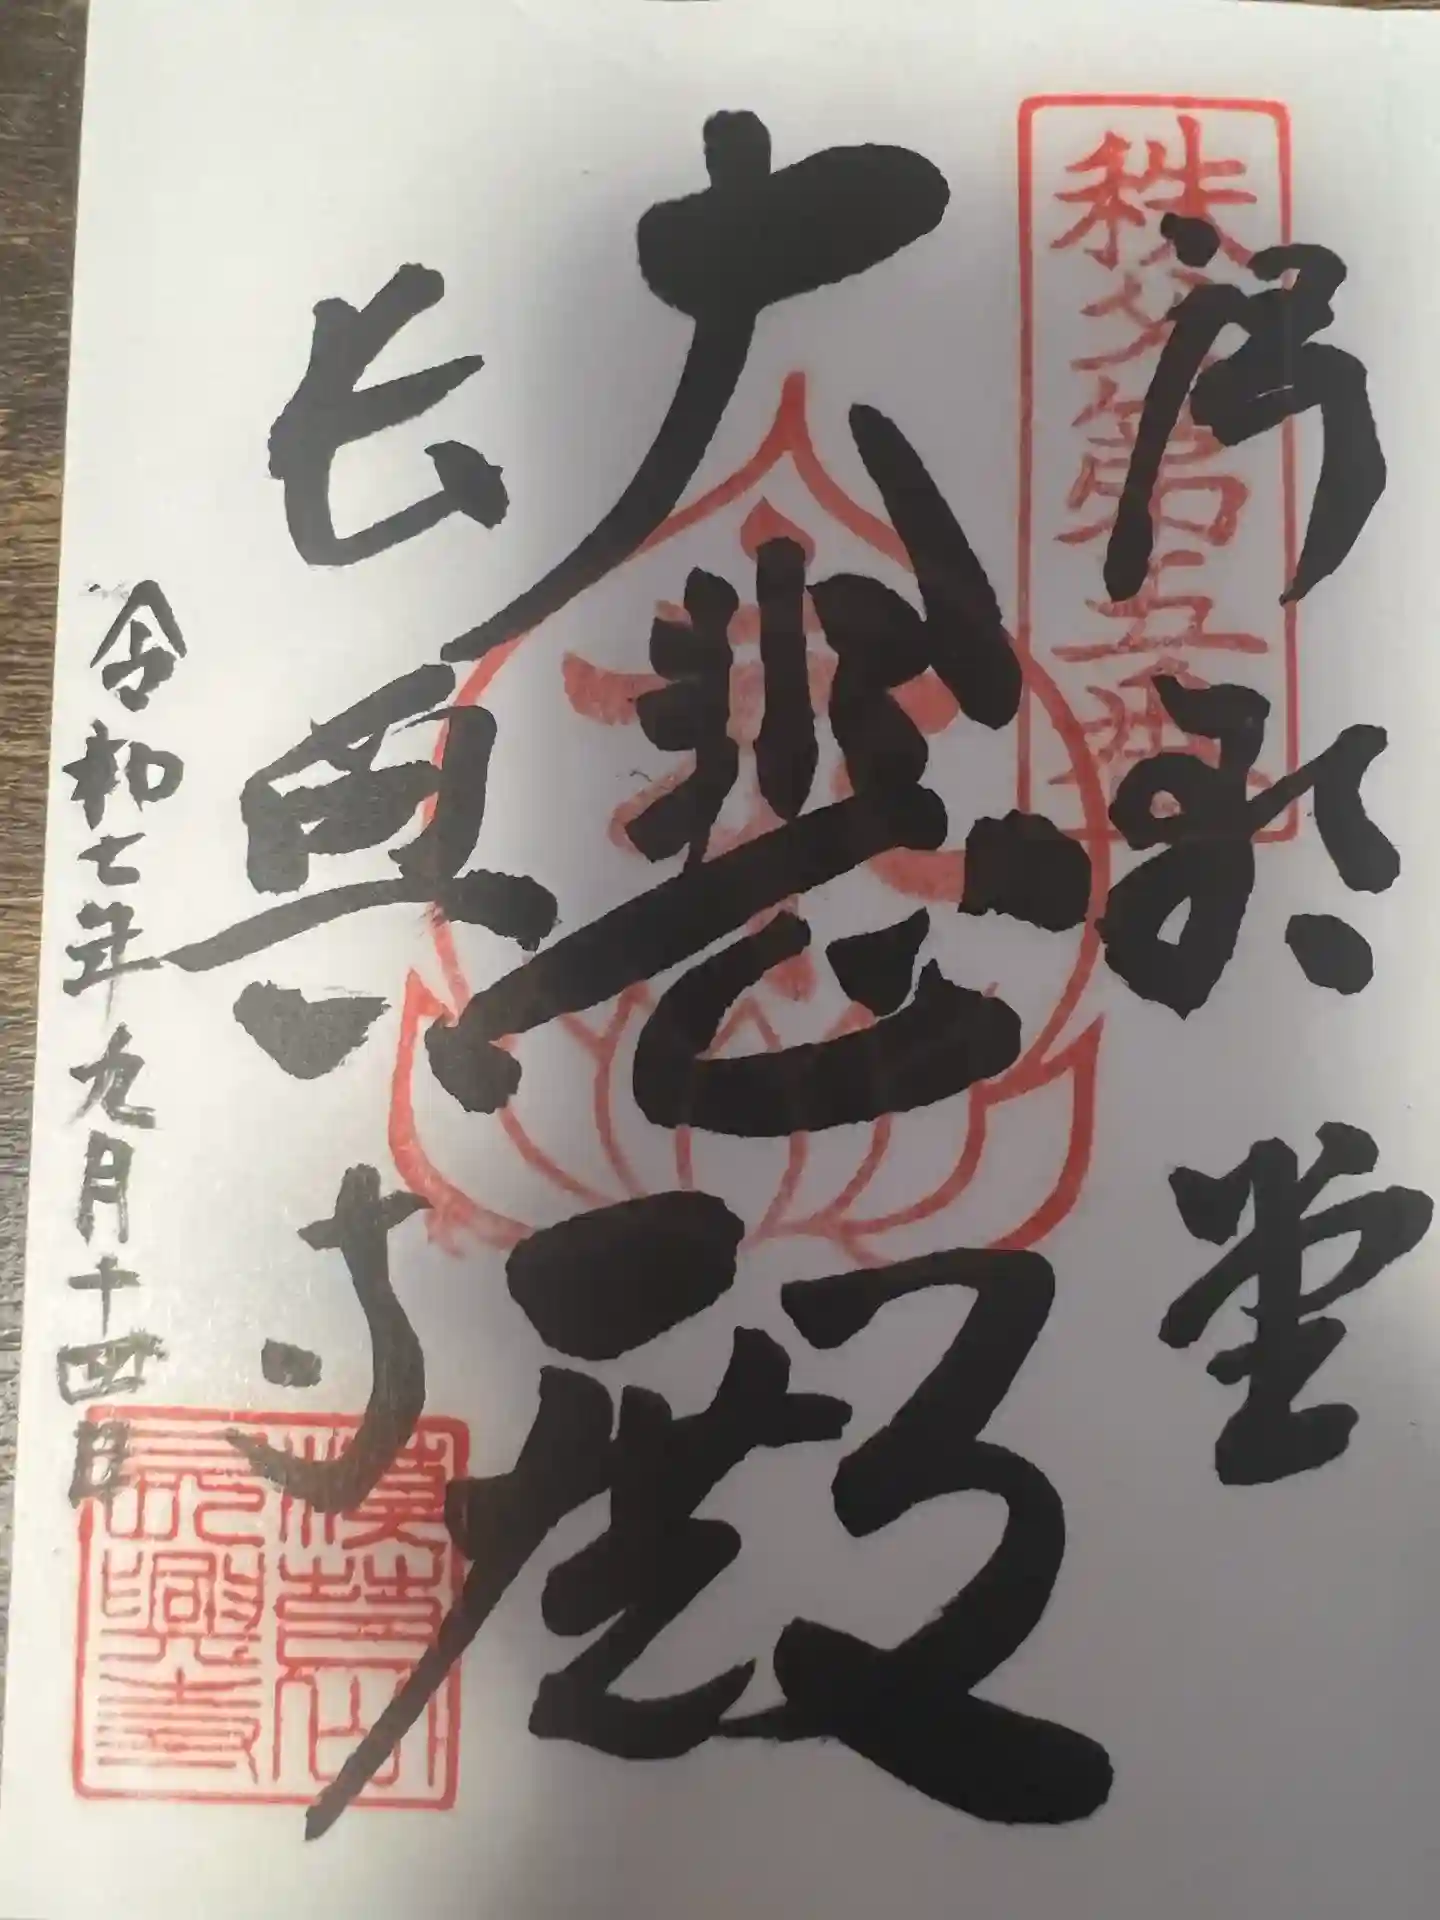 秩父第五番
語歌堂
大悲殿
長興寺
令和七年九月十四日
長興寺